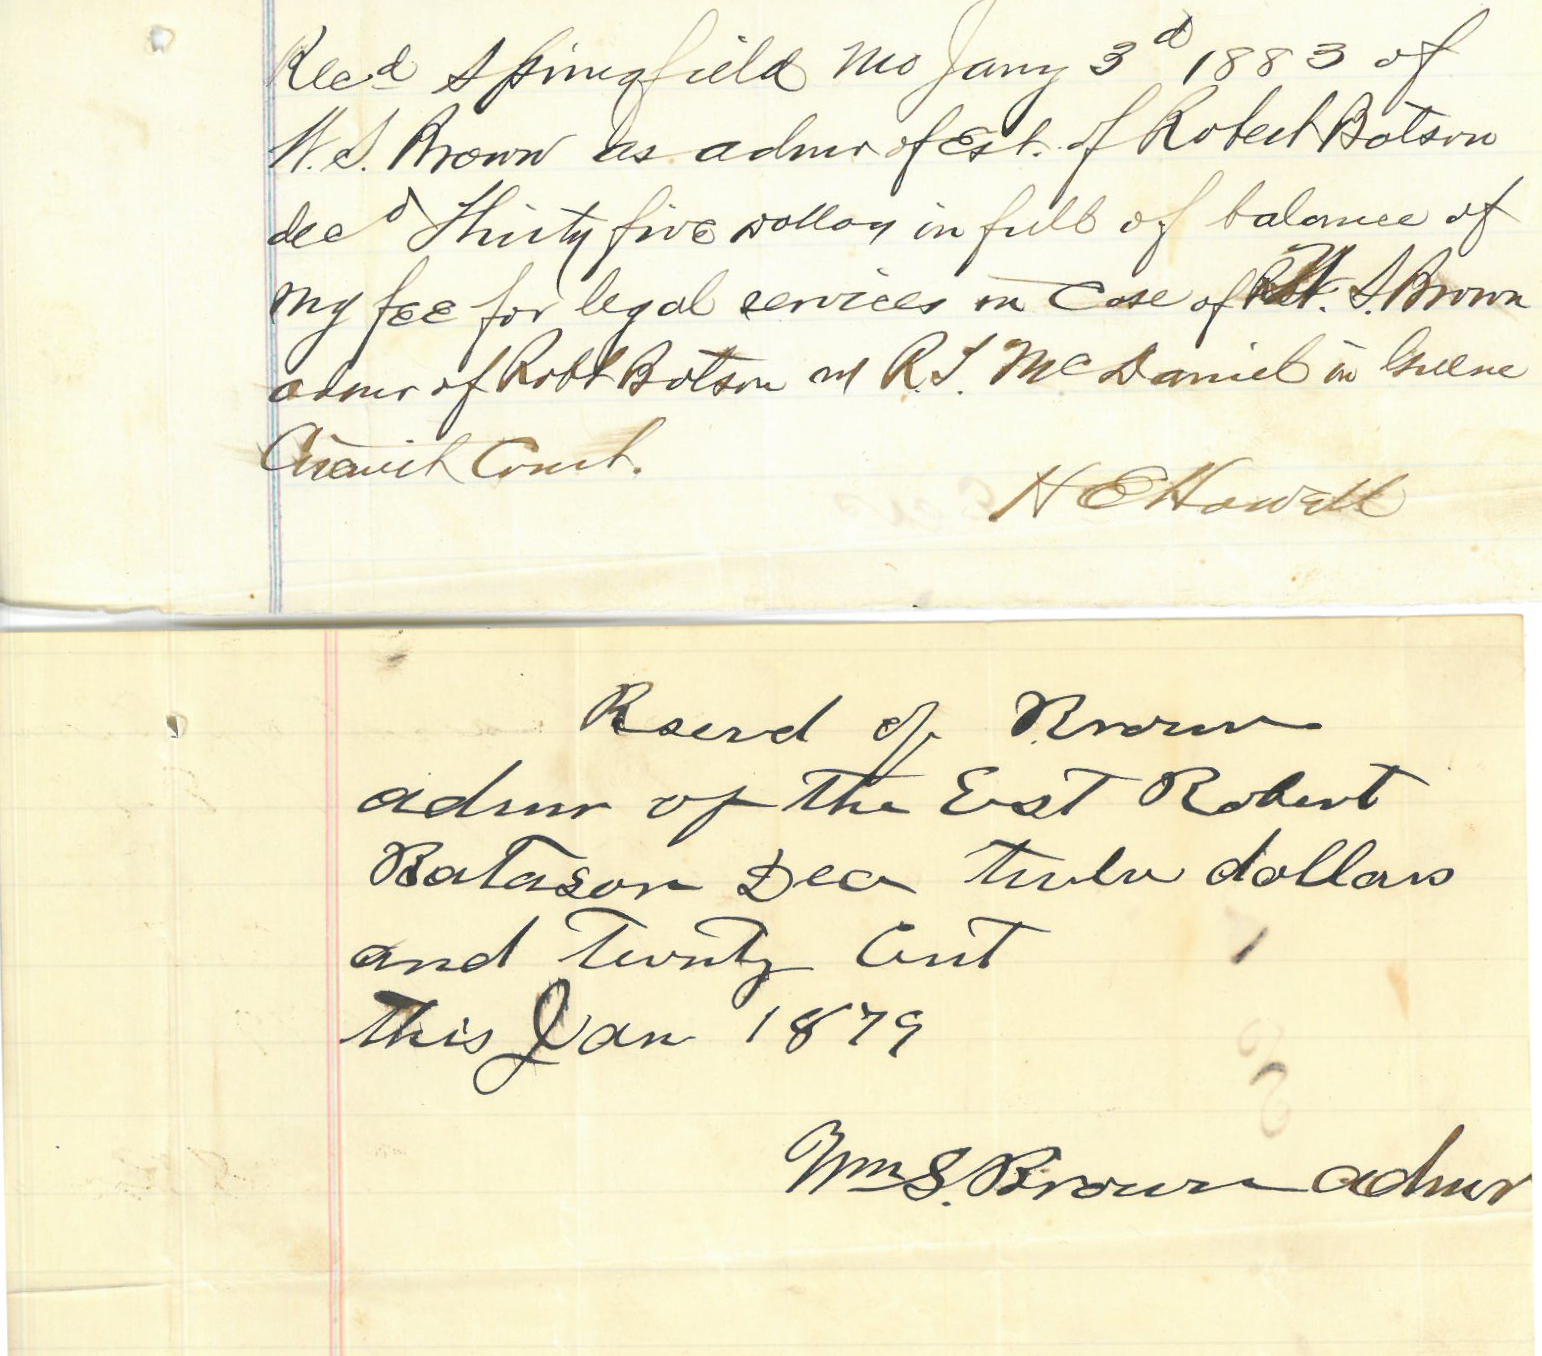 Recd Springfield Mo Jany 3d 1883 of
W. S. Brown as admr of Est. of Robert Botson
decd Thirty five dollars in full of balance of
my fee for legal services in case of W. S. Brown
admr of Robt Botson vs R. S. McDaniel in Greene
Circuit Court.
H E Howell
Reserd of Brown
admr of the Est Robert
Batason Dec twelv dollars
and Twenty Cent
this Jan 1879
Wm S. Brown admr